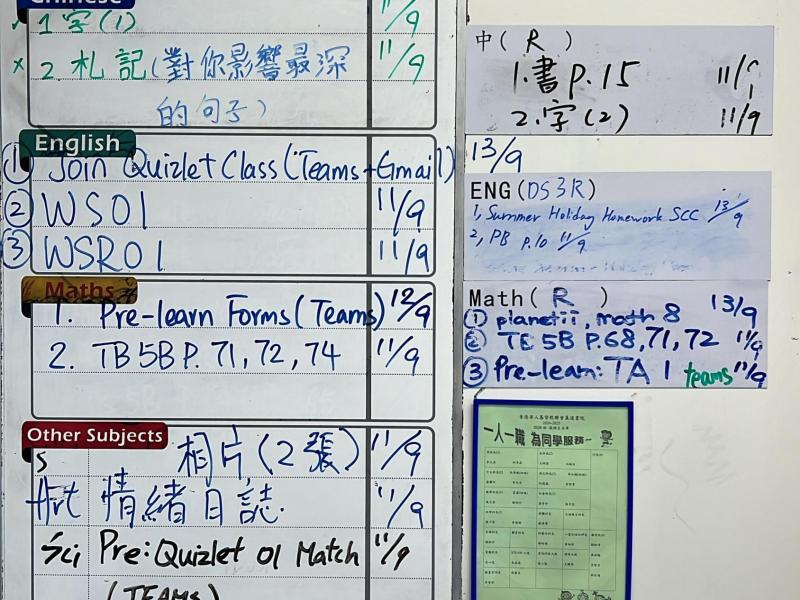 Chinese
x 1 字(1) 11/9
x 2. 札記(對你影響最深 11/9
的句子)
English
① Join Quizlet Class(Teams+Gmail) 13/9
② WS01 11/9
③ WSR01 11/9
Maths
1. Pre-learn Forms(Teams) 12/9
2. TB 5B P. 71, 72, 74 11/9
Other Subjects
s 相片(2張) 11/9
Art 情緒日誌. 11/9
Sci Pre: Quizlet 01 Match 11/9
(TEAMS)
中( R )
1. 書 p. 15 11/9
2. 字(2) 11/9
ENG(DS3R)
1, Summer Holiday Homework SCC 13/9
2, PB p.10 11/9
Math( R )
① planetii, math 8 13/9
② TE 5B P.68, 71, 72 11/9
③ Pre-learn: TA 1 teams 11/9
一人一職 為同學服務